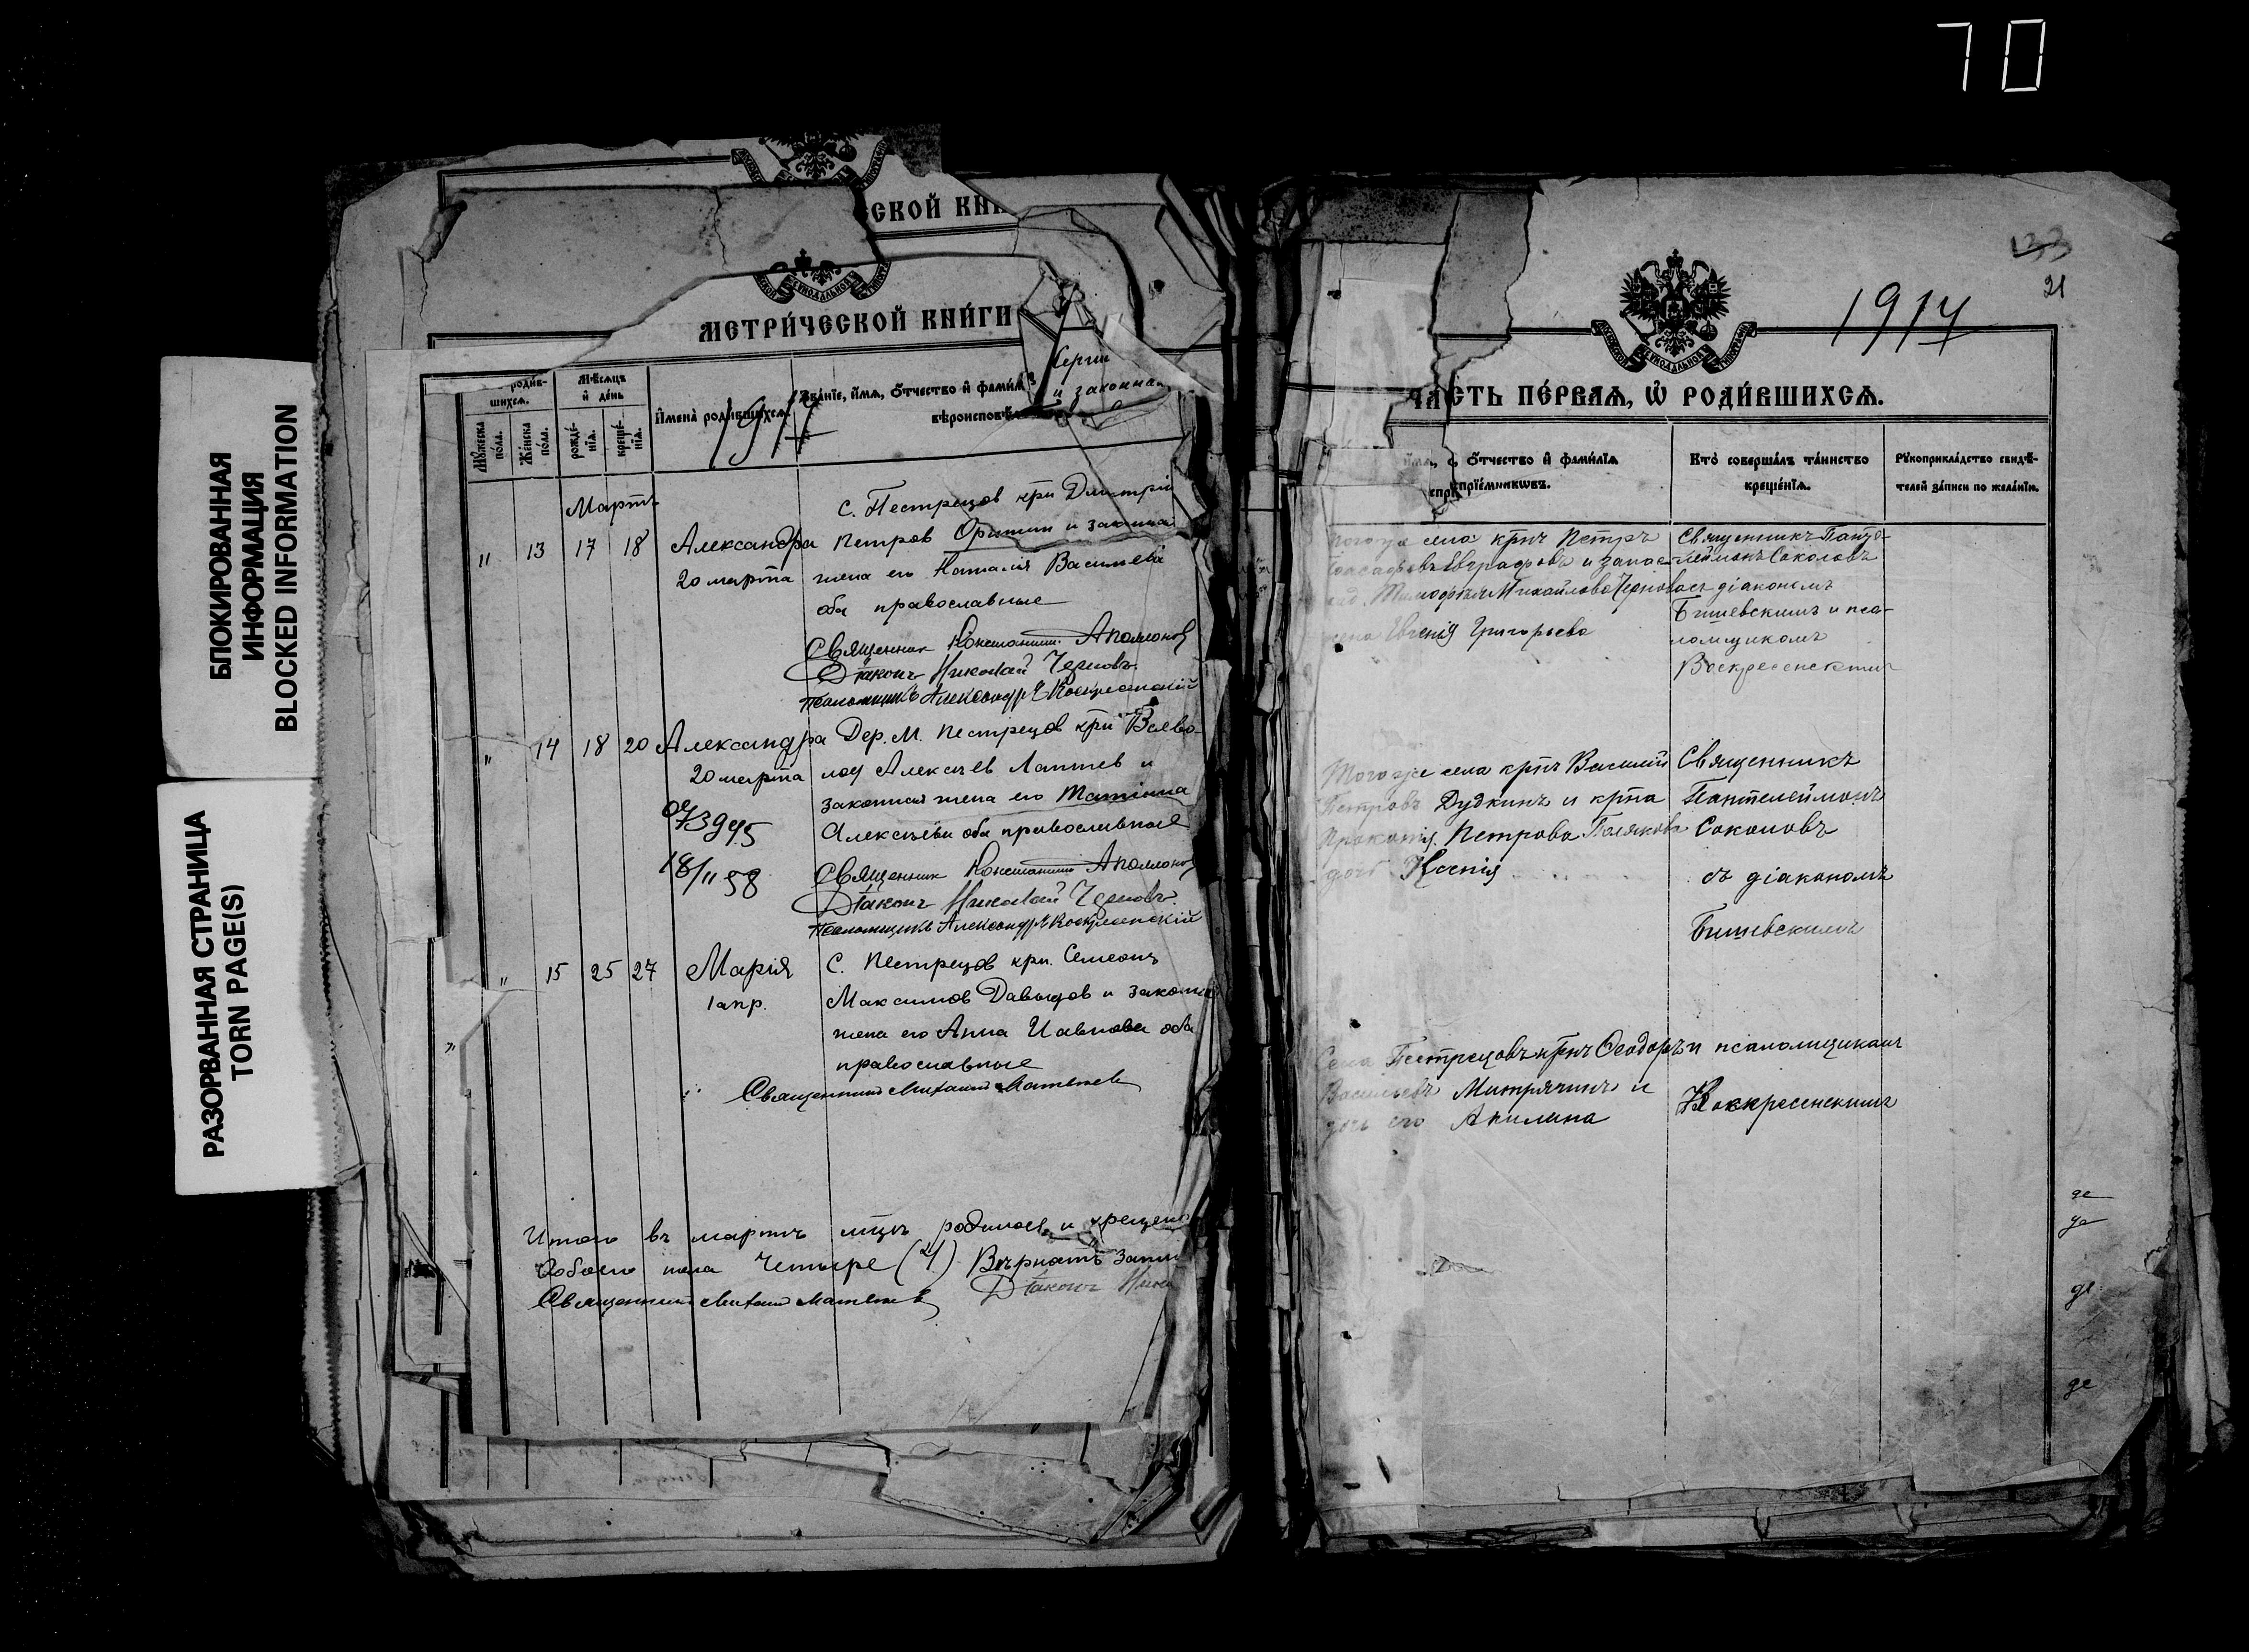 70
БЛОКИРОВАННАЯ
ИНФОРМАЦИЯ
BLOCKED INFORMATION
РАЗОРВАННАЯ СТРАНИЦА
TORN PAGE(S)
СКОЙ КНИ
МЕТРИ́ЧЕСКОЙ КНИ́ГИ
родив-
шихсѧ.
Мѣсѧцъ
и҆ де́нь
Мꙋжеска
по́ла.
Же́нска
по́ла.
рожде́-
нїѧ.
креще́-
нїѧ.
И҆мена̀ роди́вшихсѧ.
1914
Зва́нїе, и҆́мѧ, ѻ҆́тчество и҆ фами́л
вѣроисповѣ
Серги
и законная
Мартъ
" 13 17 18 Александра
20 марта
с. Пестрецов кр̃н Дмитрій
Петров и законная
жена его Наталия Васильева
оба православные
Священник Константин Аполлонов
Діаконъ Николай Черновъ
Псаломщикъ Александръ Воскресенскій
" 14 18 20 Александра
20 марта
073945
18/II 58
Дер. М. Пестрецов кр̃н Всево-
лод Алексѣев Лаптев и
законная жена его Татіана
Алексѣева оба православные
Священник Константин Аполлонов
Діаконъ Николай Черновъ
Псаломщикъ Александръ Воскресенскій
" 15 25 27 Марія
1 апр.
С. Пестрецов кр̃н. Симеонъ
Максимов Давыдов и законная
жена его Анна Ивановна оба
православные
Священник Михаил Матвеев
Итого въ мартѣ мц̃ѣ родилось и крещено
обоего пола Четыре (4) Вѣрность запи
Священник Михаил Матвеев Діаконъ Нико
133
21
1914
ЧА́СТЬ ПЕ́РВАѦ, Ѽ РОДИ́ВШИХСѦ.
и҆́мѧ, ѻ҆́тчество и҆ фами́лїѧ
спрїе́мникѡвъ.
Кто̀ соверша́лъ та́инство
креще́нїѧ.
Рꙋкоприкла́дство свидѣ́-
телей за́писи по жела́нїю.
того же села кр̃нъ Петръ
Евграфовъ и запас
Тимофѣя Михайлова Чернова
жена Евгенія Григорьева
Священникъ Панте-
леймонъ Соколовъ
съ діакономъ
Бишевскимъ и пса-
ломщикомъ
Воскресенскимъ
Того же села кр̃нъ Василий
Петровъ Дудкинъ и кр̃на
Прокопія Петрова Полякова
дочь Ксенія
Священникъ
Пантелеймонъ
Соколовъ
съ діакономъ
Бишевскимъ
Села Пестрецовъ кр̃нъ Ѳеодоръ
Васильевъ Митрячинъ и
дочь его Акилина
и псаломщикомъ
Воскресенскимъ
де
де
де
де